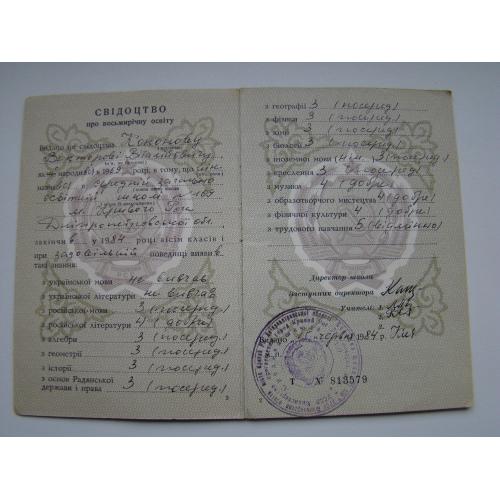 СВІДОЦТВО
про восьмирічну освіту
Видано це свідоцтво Кононову
Вікторові Віталійовичу
народи 1969 році, в тому, що
середній загально
освітній школі № 109
м. Кривого Рога
Дніпропетровської обл.
закінчив у 1984 році вісім класів і
при задовільній поведінці виявив
такі знання:
з української мови не вивчав
з української літератури не вивчав
з російської мови 3 (посеред)
з російської літератури 4 (добре)
з алгебри 3 (посеред)
з геометрії 3 (посеред)
з історії 3 (посеред)
з основ Радянської
держави і права 3 (посеред)
з географії 3 (посеред)
з фізики 3 (посеред)
з хімії 3 (посеред)
з біології 3 (посеред)
з іноземної мови (нім.) 3 (посеред)
з креслення 3 (посеред)
з музики 4 (добре)
з образотворчого мистецтва 4 (добре)
з фізичної культури 4 (добре)
з трудового навчання 5 (відмінно)
Директор школи
Заступник директора
Учителі:
Видано червня 1984 р.
Т № 813579